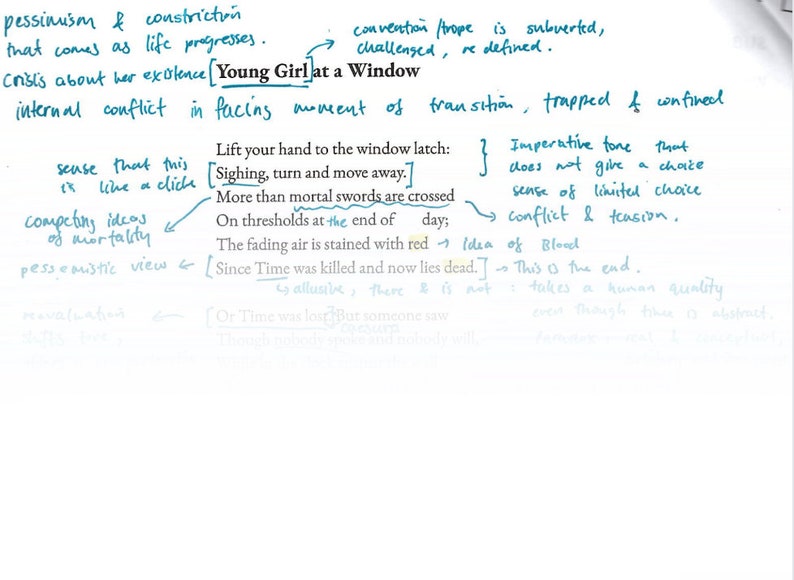 pessimism & constriction
that comes as life progresses.
convention/trope is subverted,
challenged, re defined.
crisis about her existence [Young Girl] at a Window
internal conflict in facing moment of transition, trapped & confined
Lift your hand to the window latch:
[Sighing, turn and move away.]
More than mortal swords are crossed
On thresholds at the end of day;
The fading air is stained with red → idea of Blood
[Since Time was killed and now lies dead.] → This is the end.
sense that this
is like a cliche
Imperative tone that
does not give a choice
sense of limited choice
conflict & tension.
competing ideas
of mortality
pessemistic view ←
↳ allusive, there & is not : takes a human quality
even though time is abstract.
reevaluation ← [Or Time was lost] But someone saw
caesura
Though nobody spoke and nobody will,
shifts tone,
paradox - real & conceptual,